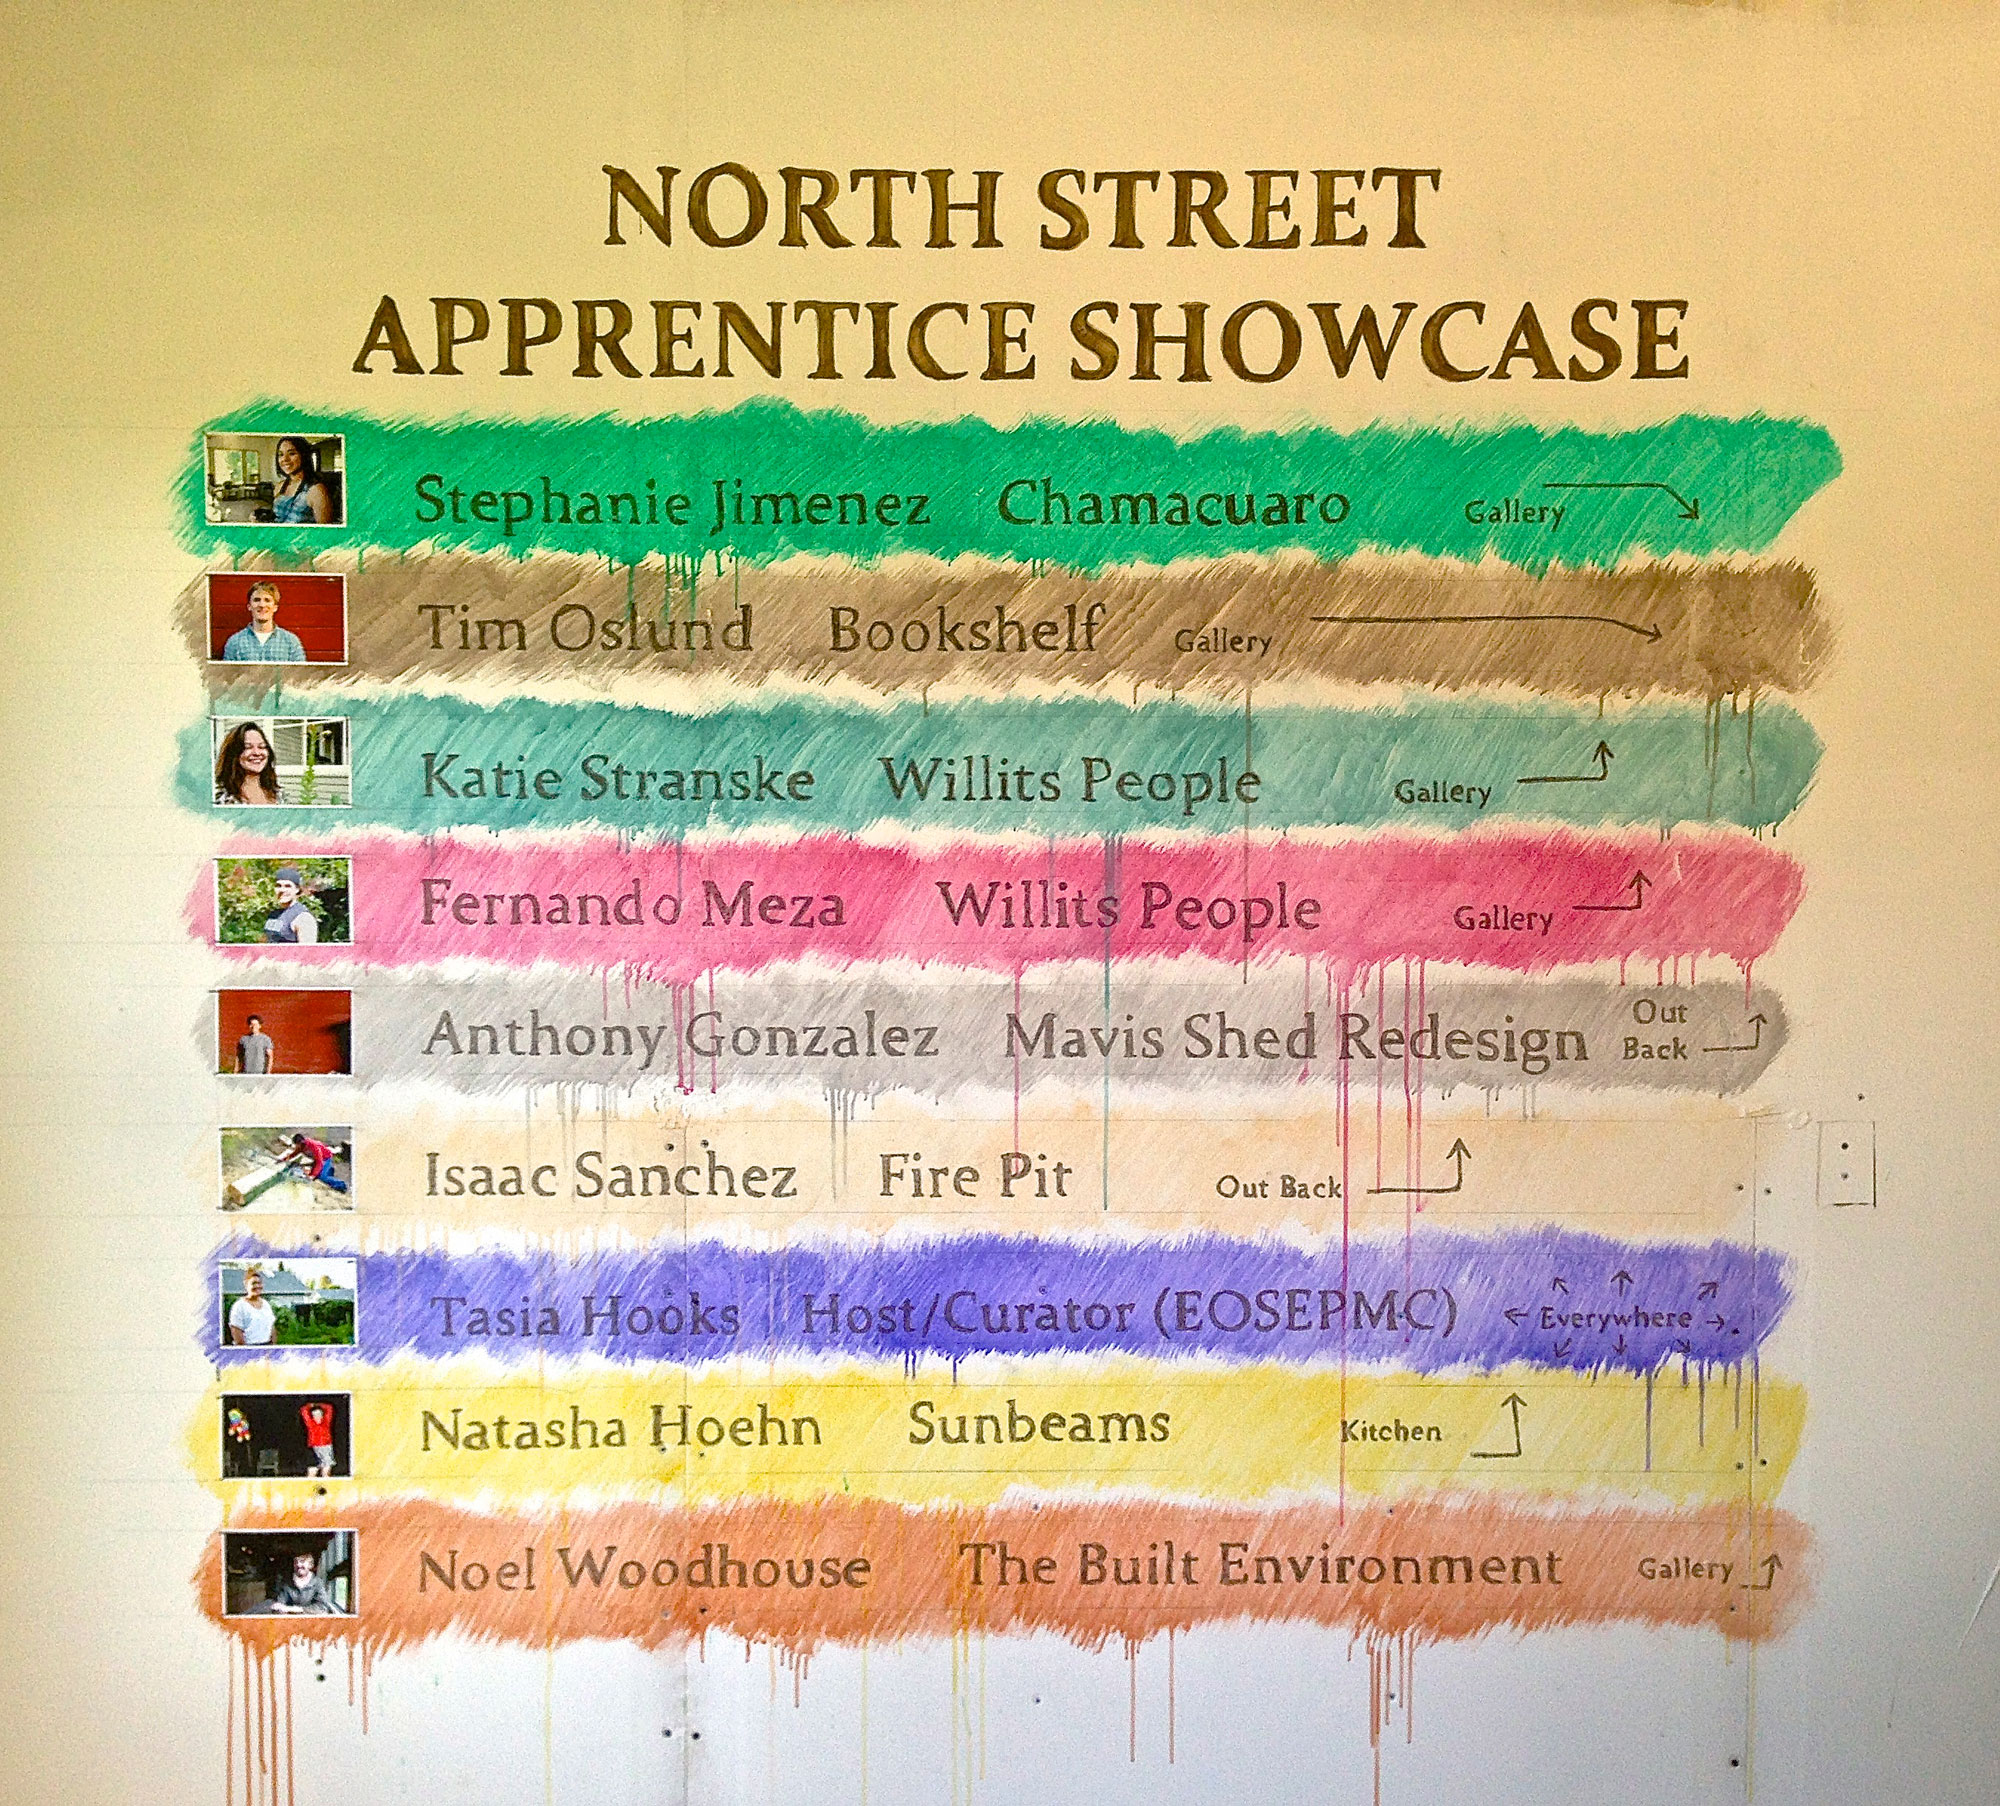 NORTH STREET
APPRENTICE SHOWCASE
Stephanie Jimenez Chamacuaro Gallery
Tim Oslund Bookshelf Gallery
Katie Stranske Willits People Gallery
Fernando Meza Willits People Gallery
Anthony Gonzalez Mavis Shed Redesign Out Back
Isaac Sanchez Fire Pit Out Back
Tasia Hooks Host/Curator (EOSEPMC) Everywhere
Natasha Hoehn Sunbeams Kitchen
Noel Woodhouse The Built Environment Gallery